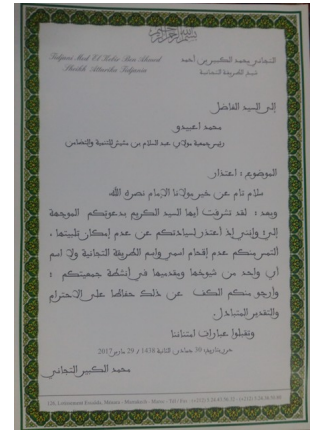 Tidjani Med El Kebir Ben Ahmed
Cheikh Attarika Tidjania
التجاني محمد الكبير بن أحمد
شيخ الطريقة التجانية
إلى السيد الفاضل
محمد اعبيدو
رئيس جمعية مولاي عبد السلام بن مشيش للتنمية والتضامن
الموضوع : اعتذار
سلام تام عن خير مولانا الإمام نصره الله
وبعد : لقد تشرفت أيها السيد الكريم بدعوتكم الموجهة
إلي، وإنني إذ أعتذر لسيادتكم عن عدم إمكان تلبيتها،
ألتمس منكم عدم إقدام اسمي واسم الطريقة التجانية ولا اسم
أي واحد من شيوخها ومقدميها في أنشطة جمعيتكم :
وأرجو منكم الكف عن ذلك حفاظا على الاحترام
والتقدير المتبادل.
وتقبلوا عبارات امتناننا
حرر بتاريخ: 30 جمادى الثانية 1438 / 29 مارس 2017
محمد الكبير التجاني